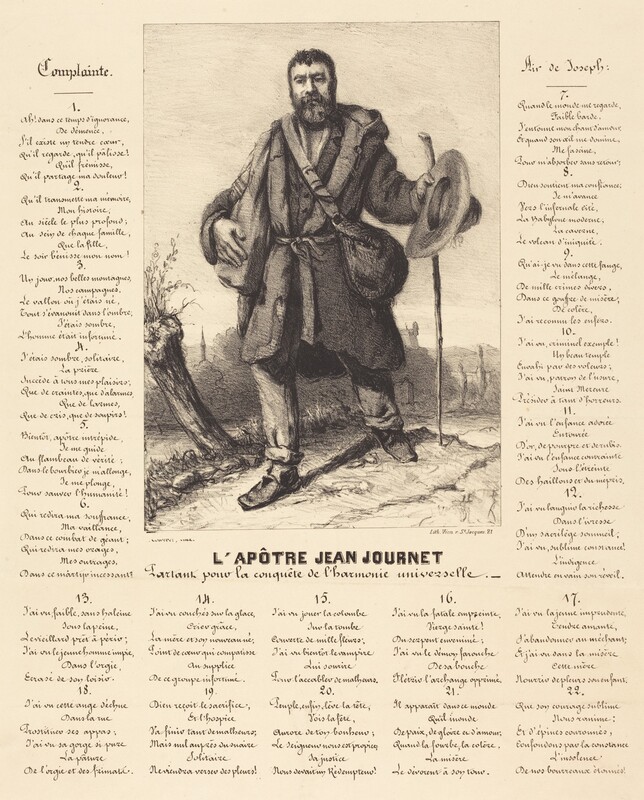 Complainte.
1.
Ah! dans ce temps d'ignorance,
De démence,
S'il existe un tendre cœur,
Qu'il regarde, qu'il pâlisse!
Qu'il frémisse,
Qu'il partage ma douleur!
2.
Qu'il transmette ma mémoire,
Mon histoire,
Au siècle le plus profond;
Au sein de chaque famille,
Que la fille,
Le soir bénisse mon nom!
3.
Un jour, nos belles montagnes,
Nos campagnes,
Le vallon où j'étais né,
Tout s'évanouit dans l'ombre;
J'étais sombre,
L'homme était infortuné.
4.
J'étais sombre, solitaire,
La prière
Succède à tous mes plaisirs;
Que de craintes, que d'alarmes
Que de larmes,
Que de cris, que de soupirs!
5.
Bientôt, apôtre intrépide,
Je me guide
Au flambeau de vérité;
Dans le bourbier je m'allonge,
Je me plonge,
Pour sauver l'humanité!
6.
Qui redira ma souffrance,
Ma vaillance,
Dans ce combat de géant;
Qui redira mes orages,
Mes outrages,
Dans ce martyr incessant?
Air de Joseph:
7.
Quand le monde me regarde,
Faible barde,
J'entonne mon chant d'amour,
Et quand son œil me domine,
Me fascine,
Pour m'absorber sans retour;
8.
Dieu soutient ma confiance;
Je m'avance
Vers l'infernale cité,
La Babylone moderne;
La caverne,
Le volcan d'iniquité.
9.
Qu'ai-je vu dans cette fange,
Le mélange,
De mille crimes divers,
Dans ce gouffre de misère,
De colère,
J'ai reconnu les enfers.
10.
J'ai vu, criminel exemple!
Un beau temple
Envahi par des voleurs;
J'ai vu, patron de l'usure,
Saint Mercure
Présider à tant d'horreurs.
11.
J'ai vu l'enfance adorée
Entourée
D'or, de pourpre et de rubis.
J'ai vu l'enfance courante
Sous l'étreinte
Des haillons et du mépris,
12.
J'ai vu languir la richesse
Dans l'ivresse
D'un sacrilège sommeil;
J'ai vu, sublime constance!
L'indigence
Attendre en vain son réveil.
Lith. Vion r. St Jacques 21
L'APÔTRE JEAN JOURNET
Partant pour la conquête de l'harmonie universelle.
13.
J'ai vu faible, sans haleine
Sous la peine,
Le vieillard prêt à périr;
J'ai vu le jeune homme impie,
Dans l'orgie,
Écrasé de son loisir.
14.
J'ai vu couchés sur la glace,
Crier grâce,
La mère et son nouveau né;
Point de cœur qui compatisse
Au supplice
De ce groupe infortuné.
15.
J'ai vu jouer la colombe
Sur la tombe
Couverte de mille fleurs;
J'ai vu bientôt le vampire
Lui sourire
Pour l'accabler de malheurs.
16.
J'ai vu la fatale empreinte,
Vierge sainte!
Du serpent envenimé;
J'ai vu le démon farouche
De sa bouche
Flétrir l'archange opprimé.
17.
J'ai vu la jeune imprudente,
Tendre amante,
S'abandonner au méchant;
Et j'ai vu dans la misère
Cette mère
Nourrir de pleurs son enfant.
18.
J'ai vu cette ange déchue
Dans la rue
Prostituer ses appas;
J'ai vu sa gorge si pure
La pâture
De l'orgie et des frimats.
19.
Dieu reçoit le sacrifice,
Et l'hospice
Va finir tant de malheurs;
Mais nul auprès du suaire
Solitaire
Ne viendra verser des pleurs!
20.
Peuple, enfin, lève la tête,
Vois la fête,
Aurore de ton bonheur;
Le Seigneur nous est propice
Sa justice
Nous devait un Rédempteur!
21.
Il apparaît dans ce monde
Qu'il inonde
De paix, de gloire et d'amour;
Quand la fourbe, la colère,
La misère
Le dévorent à son tour.
22.
Que son courage sublime
Nous ranime;
Et d'épines couronnés,
Confondons par la constance
L'insolence
De nos bourreaux étonnés!